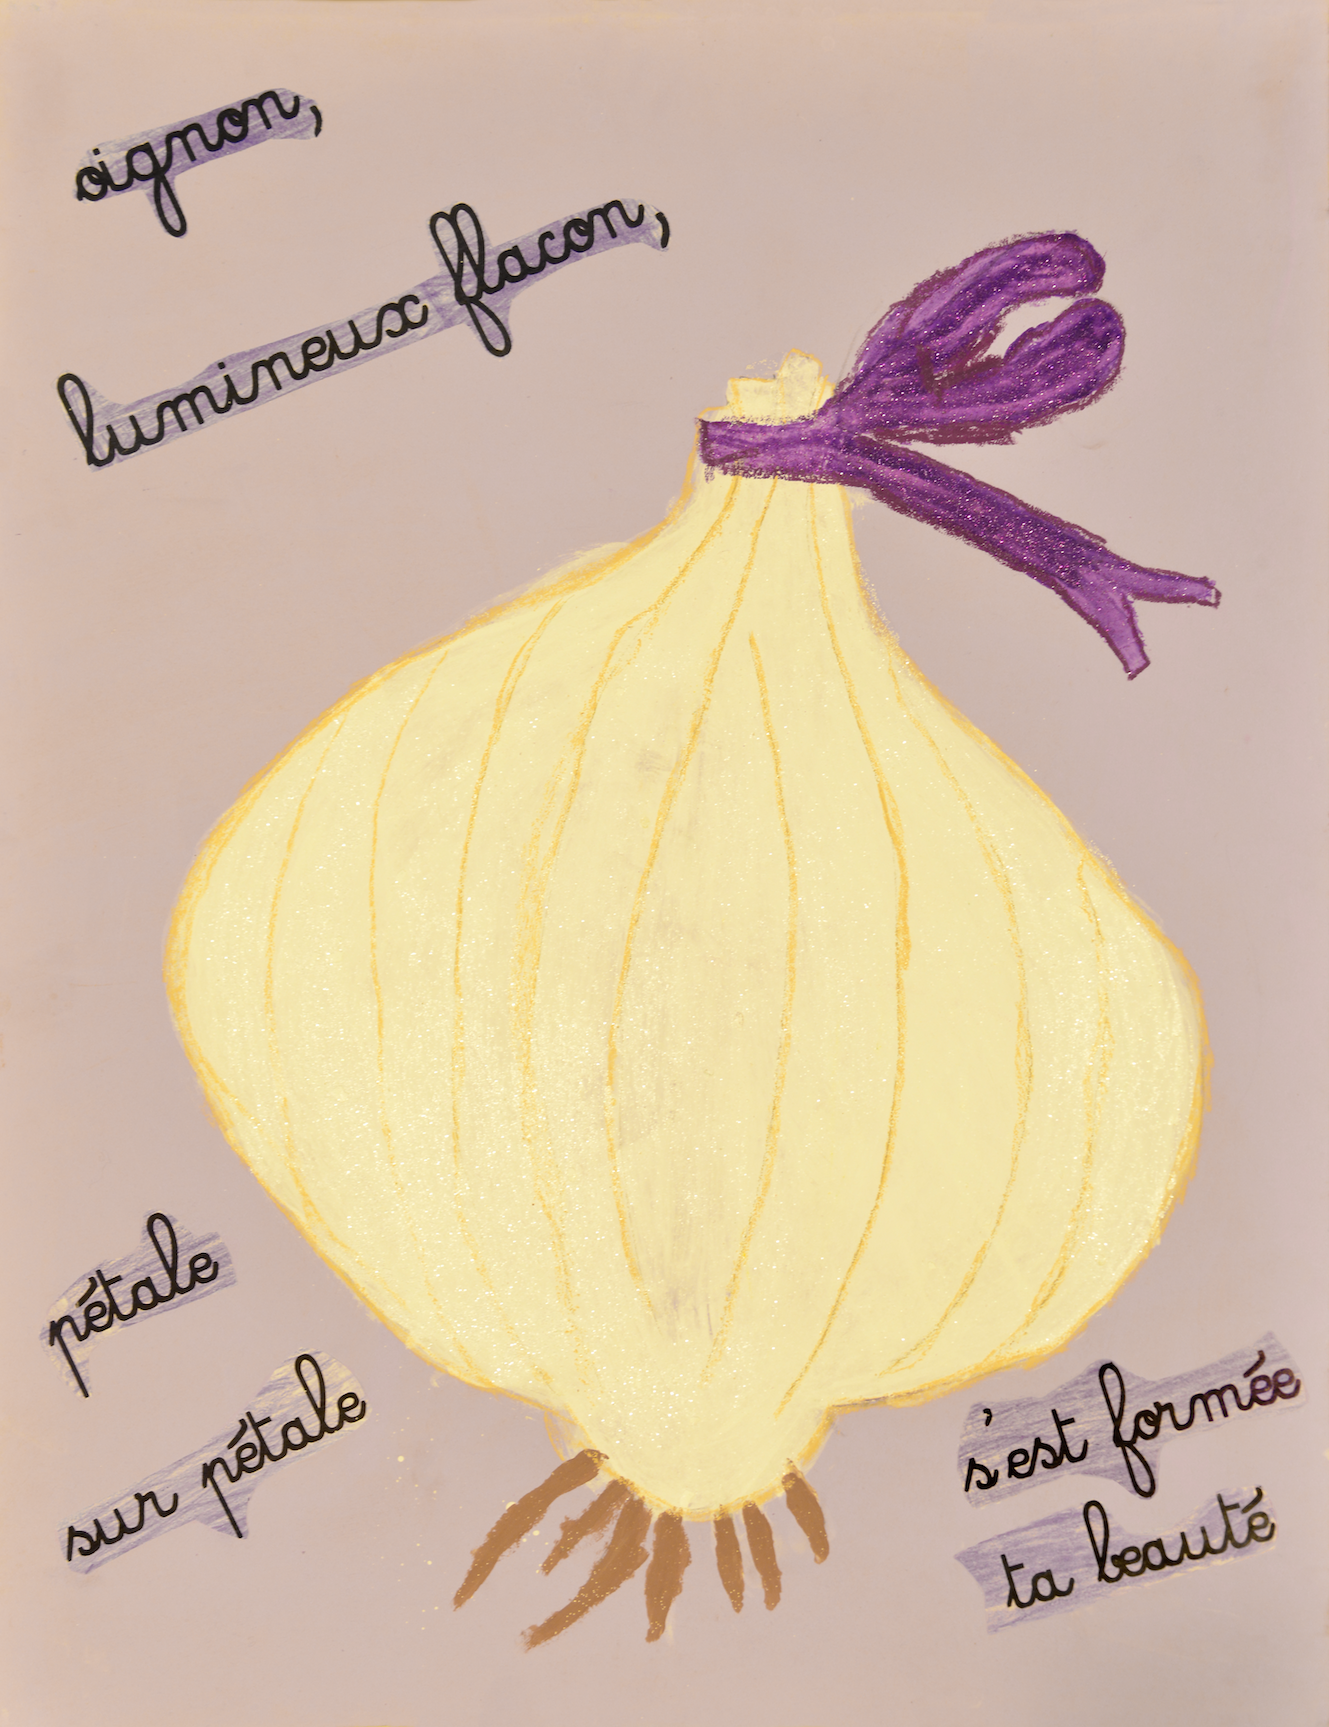 oignon,
lumineux flacon,
pétale
sur pétale
s'est formée
ta beauté